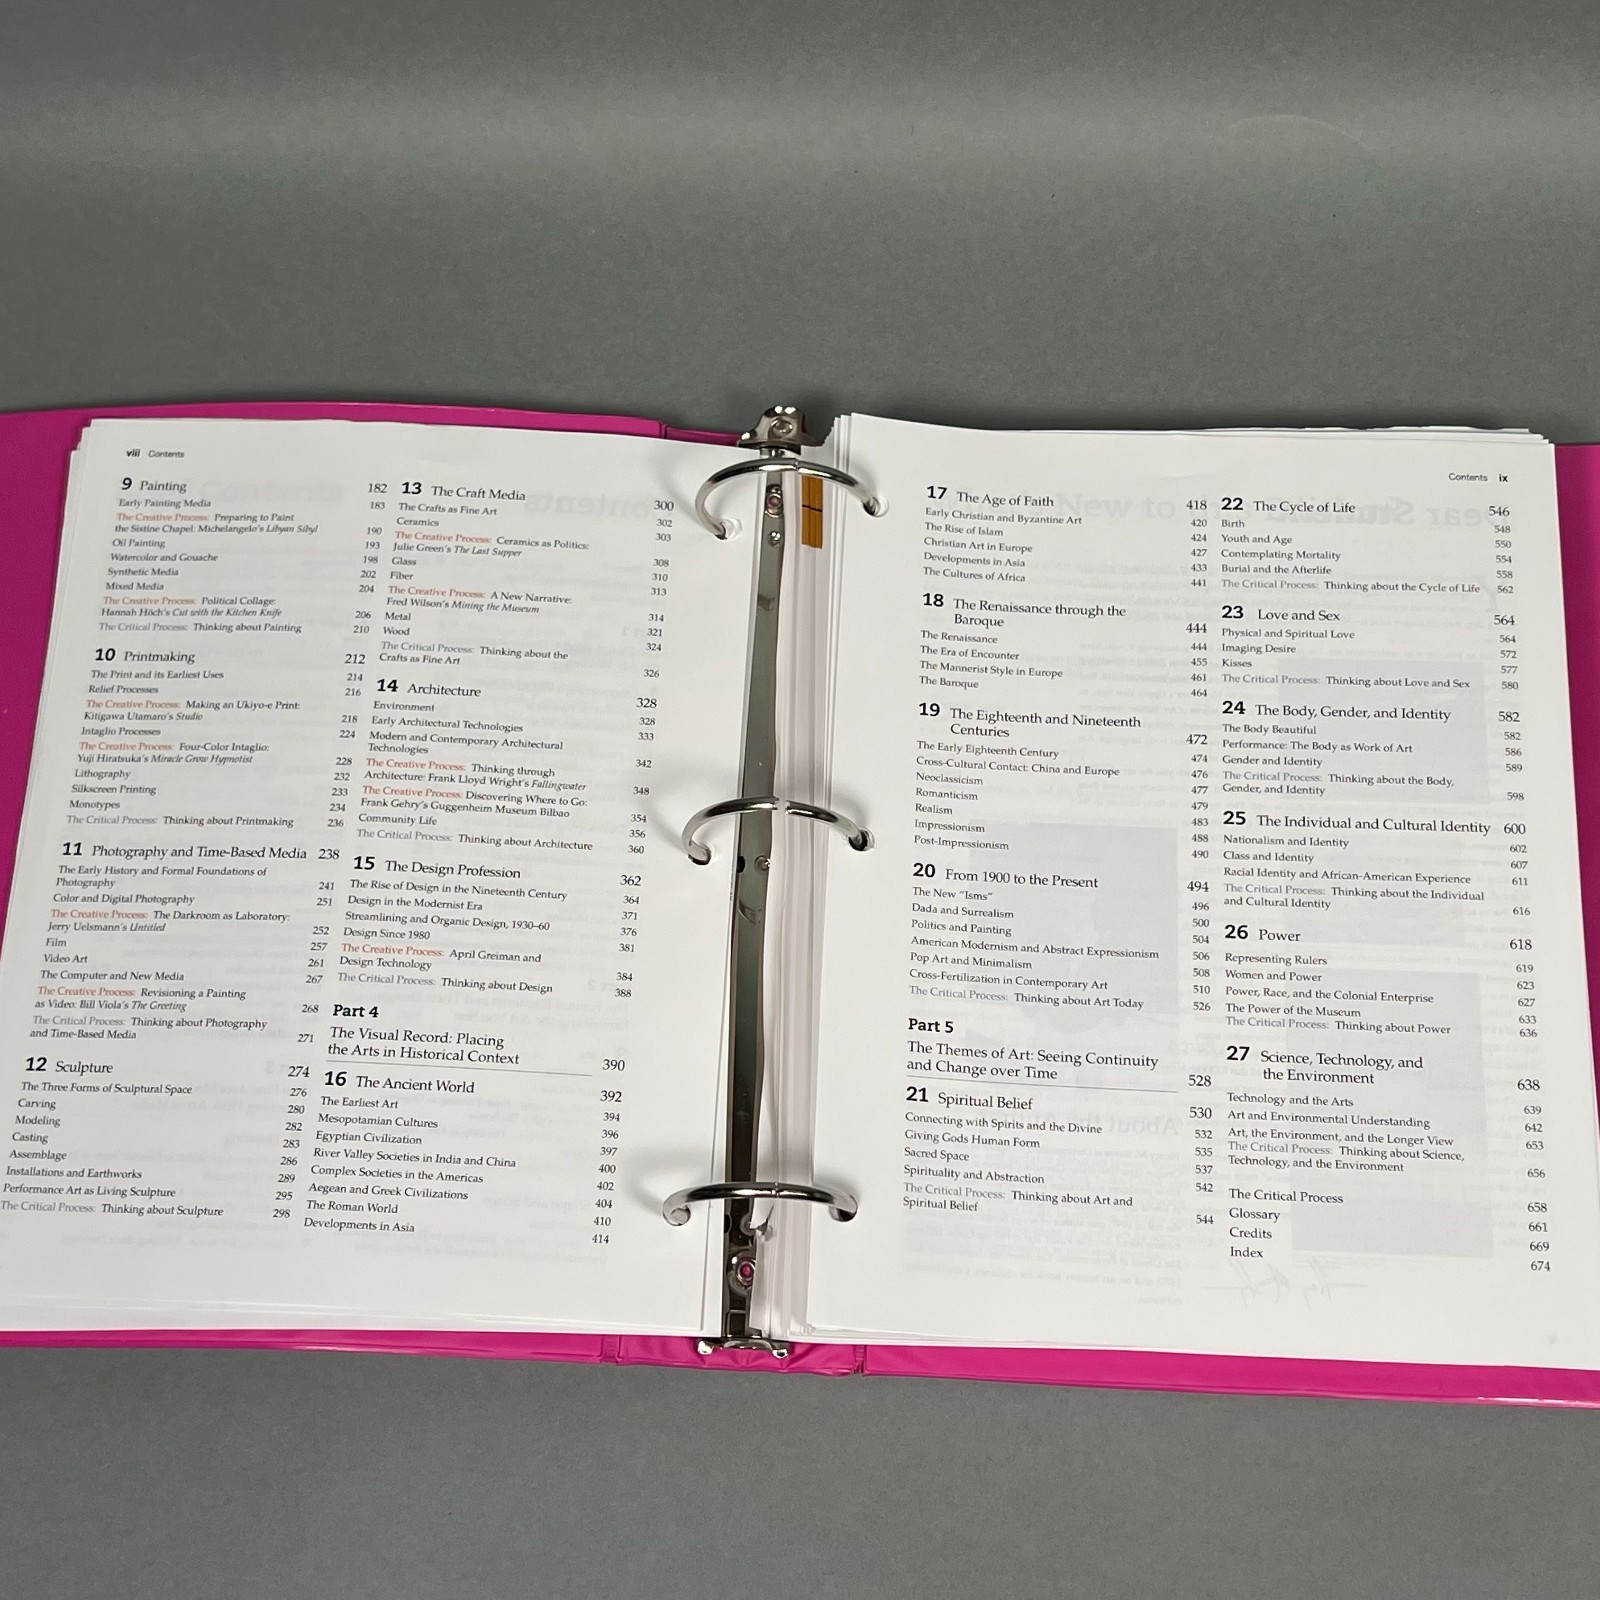 viii Contents
9 Painting 182
Early Painting Media 183
The Creative Process: Preparing to Paint
the Sistine Chapel: Michelangelo's Libyan Sibyl 190
Oil Painting 193
Watercolor and Gouache 198
Synthetic Media 202
Mixed Media 204
The Creative Process: Political Collage:
Hannah Höch's Cut with the Kitchen Knife 206
The Critical Process: Thinking about Painting 210
10 Printmaking 212
The Print and its Earliest Uses 214
Relief Processes 216
The Creative Process: Making an Ukiyo-e Print:
Kitigawa Utamaro's Studio 218
Intaglio Processes 224
The Creative Process: Four-Color Intaglio:
Yuji Hiratsuka's Miracle Grow Hypnotist 228
Lithography 232
Silkscreen Printing 233
Monotypes 234
The Critical Process: Thinking about Printmaking 236
11 Photography and Time-Based Media 238
The Early History and Formal Foundations of
Photography 241
Color and Digital Photography 251
The Creative Process: The Darkroom as Laboratory:
Jerry Uelsmann's Untitled 252
Film 257
Video Art 261
The Computer and New Media 267
The Creative Process: Revisioning a Painting
as Video: Bill Viola's The Greeting 268
The Critical Process: Thinking about Photography
and Time-Based Media 271
12 Sculpture 274
The Three Forms of Sculptural Space 276
Carving 280
Modeling 282
Casting 283
Assemblage 286
Installations and Earthworks 289
Performance Art as Living Sculpture 295
The Critical Process: Thinking about Sculpture 298
13 The Craft Media 300
The Crafts as Fine Art 302
Ceramics 303
The Creative Process: Ceramics as Politics:
Julie Green's The Last Supper 308
Glass 310
Fiber 313
The Creative Process: A New Narrative:
Fred Wilson's Mining the Museum 314
Metal 321
Wood 324
The Critical Process: Thinking about the
Crafts as Fine Art 326
14 Architecture 328
Environment 328
Early Architectural Technologies 333
Modern and Contemporary Architectural
Technologies 342
The Creative Process: Thinking through
Architecture: Frank Lloyd Wright's Fallingwater 348
The Creative Process: Discovering Where to Go:
Frank Gehry's Guggenheim Museum Bilbao 354
Community Life 356
The Critical Process: Thinking about Architecture 360
15 The Design Profession 362
The Rise of Design in the Nineteenth Century 364
Design in the Modernist Era 371
Streamlining and Organic Design, 1930–60 376
Design Since 1980 381
The Creative Process: April Greiman and
Design Technology 384
The Critical Process: Thinking about Design 388
Part 4
The Visual Record: Placing
the Arts in Historical Context 390
16 The Ancient World 392
The Earliest Art 394
Mesopotamian Cultures 396
Egyptian Civilization 397
River Valley Societies in India and China 400
Complex Societies in the Americas 402
Aegean and Greek Civilizations 404
The Roman World 410
Developments in Asia 414
Contents ix
17 The Age of Faith 418
Early Christian and Byzantine Art 420
The Rise of Islam 424
Christian Art in Europe 427
Developments in Asia 433
The Cultures of Africa 441
18 The Renaissance through the
Baroque 444
The Renaissance 444
The Era of Encounter 455
The Mannerist Style in Europe 461
The Baroque 464
19 The Eighteenth and Nineteenth
Centuries 472
The Early Eighteenth Century 474
Cross-Cultural Contact: China and Europe 476
Neoclassicism 477
Romanticism 479
Realism 483
Impressionism 488
Post-Impressionism 490
20 From 1900 to the Present 494
The New "Isms" 496
Dada and Surrealism 500
Politics and Painting 504
American Modernism and Abstract Expressionism 506
Pop Art and Minimalism 508
Cross-Fertilization in Contemporary Art 510
The Critical Process: Thinking about Art Today 526
Part 5
The Themes of Art: Seeing Continuity
and Change over Time 528
21 Spiritual Belief 530
Connecting with Spirits and the Divine 532
Giving Gods Human Form 535
Sacred Space 537
Spirituality and Abstraction 542
The Critical Process: Thinking about Art and
Spiritual Belief 544
22 The Cycle of Life 546
Birth 548
Youth and Age 550
Contemplating Mortality 554
Burial and the Afterlife 558
The Critical Process: Thinking about the Cycle of Life 562
23 Love and Sex 564
Physical and Spiritual Love 564
Imaging Desire 572
Kisses 577
The Critical Process: Thinking about Love and Sex 580
24 The Body, Gender, and Identity 582
The Body Beautiful 582
Performance: The Body as Work of Art 586
Gender and Identity 589
The Critical Process: Thinking about the Body,
Gender, and Identity 598
25 The Individual and Cultural Identity 600
Nationalism and Identity 602
Class and Identity 607
Racial Identity and African-American Experience 611
The Critical Process: Thinking about the Individual
and Cultural Identity 616
26 Power 618
Representing Rulers 619
Women and Power 623
Power, Race, and the Colonial Enterprise 627
The Power of the Museum 633
The Critical Process: Thinking about Power 636
27 Science, Technology, and
the Environment 638
Technology and the Arts 639
Art and Environmental Understanding 642
Art, the Environment, and the Longer View 653
The Critical Process: Thinking about Science,
Technology, and the Environment 656
The Critical Process 658
Glossary 661
Credits 669
Index 674